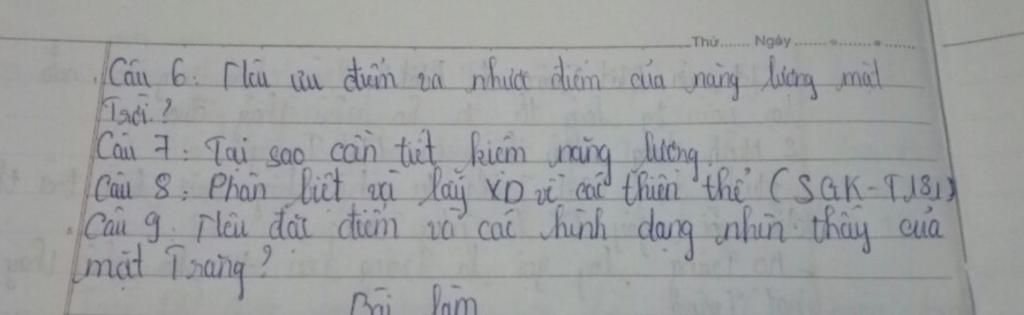 Thứ...... Ngày ...............
Câu 6. Nêu ưu điểm và nhược điểm của năng lượng mặt
Trời?
Câu 7: Tại sao cần tiết kiệm năng lượng
Câu 8: Phân biệt và lấy XD về các thiên thể (SGK-T181)
Câu 9. Nêu đặc điểm và các hình dạng nhìn thấy của
mặt Trăng?
Bài làm